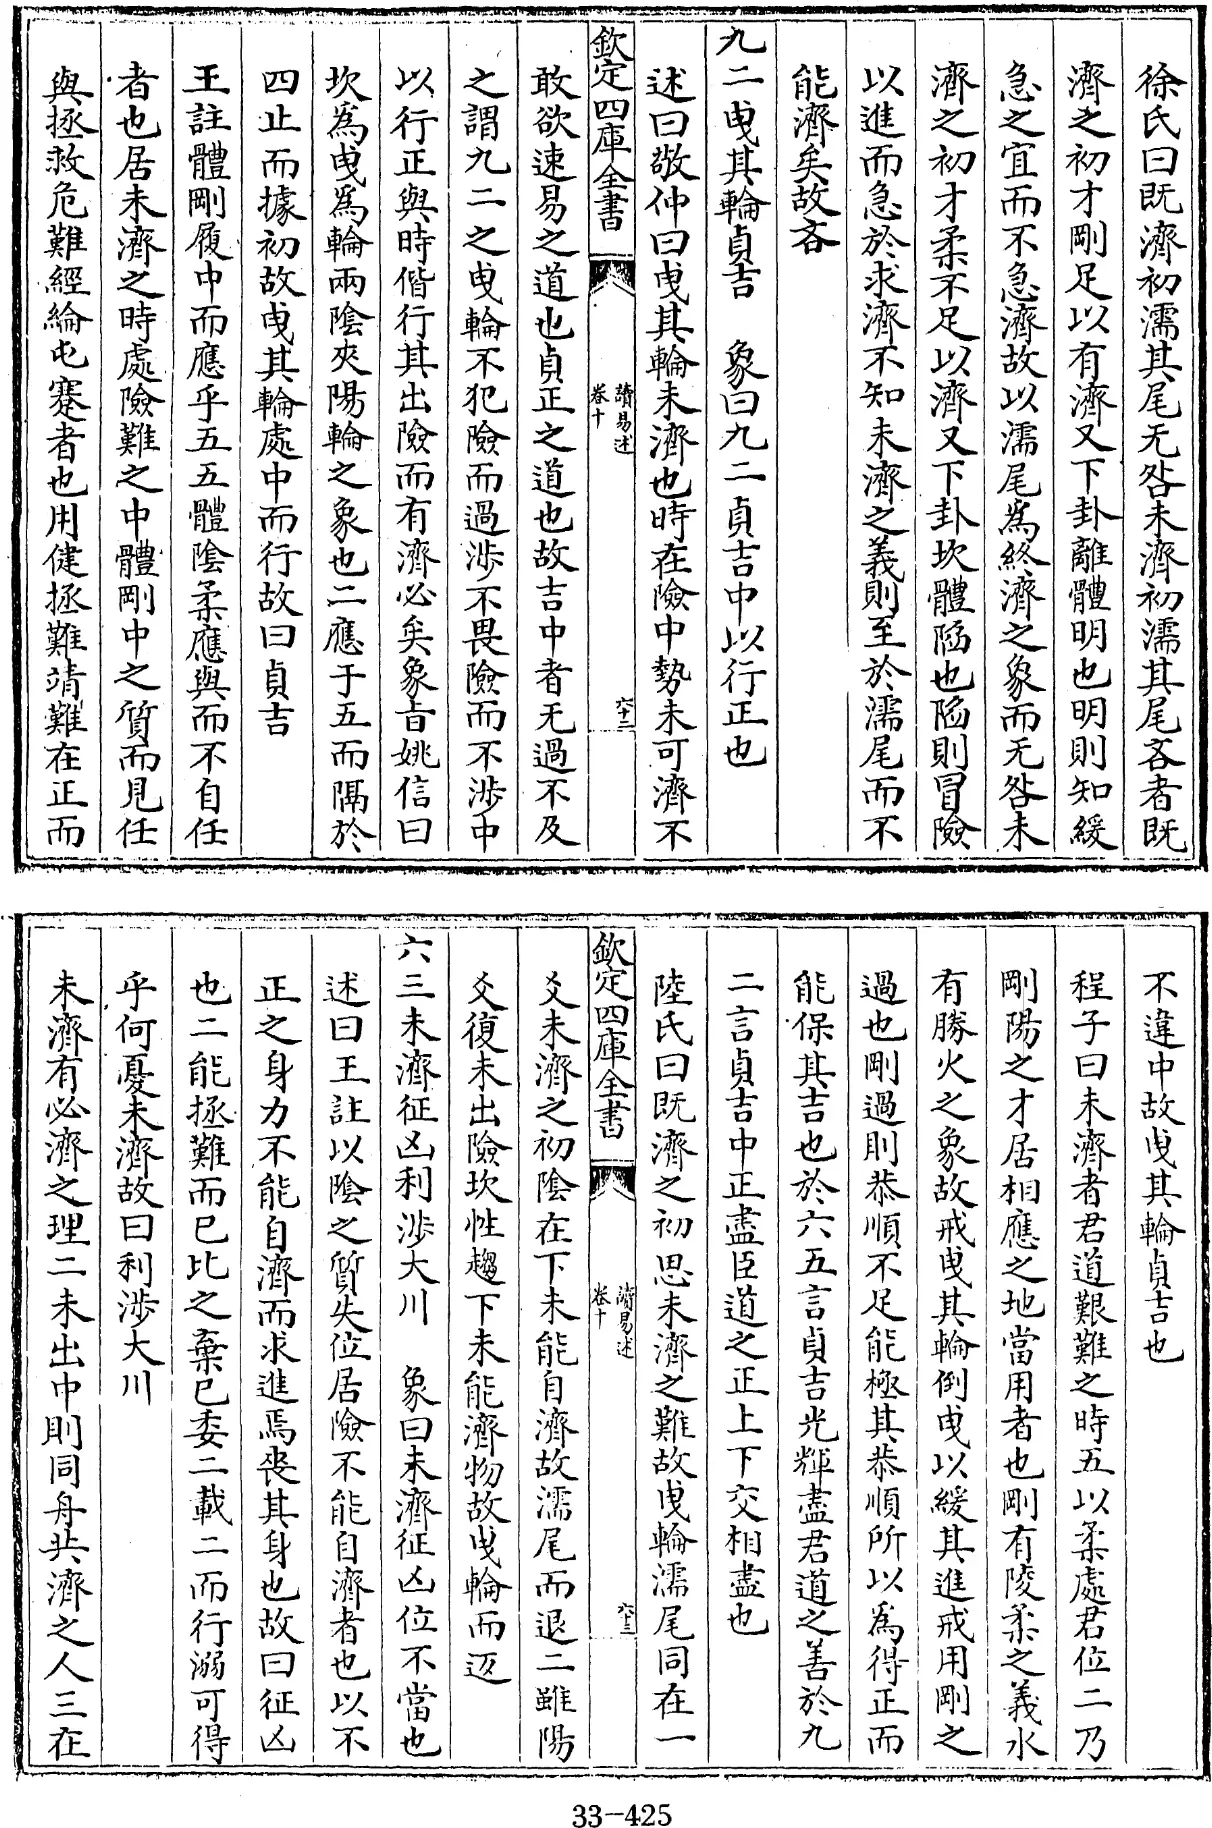 徐氏曰既濟初濡其尾无咎未濟初濡其尾吝者既
濟之初才剛足以有濟又下卦離體明也明則知緩
急之宜而不急濟故以濡尾為終濟之象而无咎未
濟之初才柔不足以濟又下卦坎體陷也陷則冒險
以進而急於求濟不知未濟之義則至於濡尾而不
能濟矣故吝
九二曳其輪貞吉　象曰九二貞吉中以行正也
述曰敬仲曰曳其輪未濟也時在險中勢未可濟不
欽定四庫全書
讀易述
卷十
六十二
敢欲速易之道也貞正之道也故吉中者无過不及
之謂九二之曳輪不犯險而過涉不畏險而不涉中
以行正與時偕行其出險而有濟必矣象旨姚信曰
坎為曳為輪兩陰夾陽輪之象也二應于五而隔於
四止而據初故曳其輪處中而行故曰貞吉
王註體剛履中而應乎五五體陰柔應與而不自任
者也居未濟之時處險難之中體剛中之質而見任
與拯救危難經綸屯蹇者也用健拯難靖難在正而
不違中故曳其輪貞吉也
程子曰未濟者君道艱難之時五以柔處君位二乃
剛陽之才居相應之地當用者也剛有陵柔之義水
有勝火之象故戒曳其輪倒曳以緩其進戒用剛之
過也剛過則恭順不足能極其恭順所以為得正而
能保其吉也於六五言貞吉光輝盡君道之善於九
二言貞吉中正盡臣道之正上下交相盡也
陸氏曰既濟之初思未濟之難故曳輪濡尾同在一
欽定四庫全書
讀易述
卷十
六十三
爻未濟之初陰在下未能自濟故濡尾而退二雖陽
爻復未出險坎性趨下未能濟物故曳輪而返
六三未濟征凶利涉大川　象曰未濟征凶位不當也
述曰王註以陰之質失位居險不能自濟者也以不
正之身力不能自濟而求進焉喪其身也故曰征凶
也二能拯難而已比之棄已委二載二而行溺可得
乎何憂未濟故曰利涉大川
未濟有必濟之理二未出中則同舟共濟之人三在
33-425